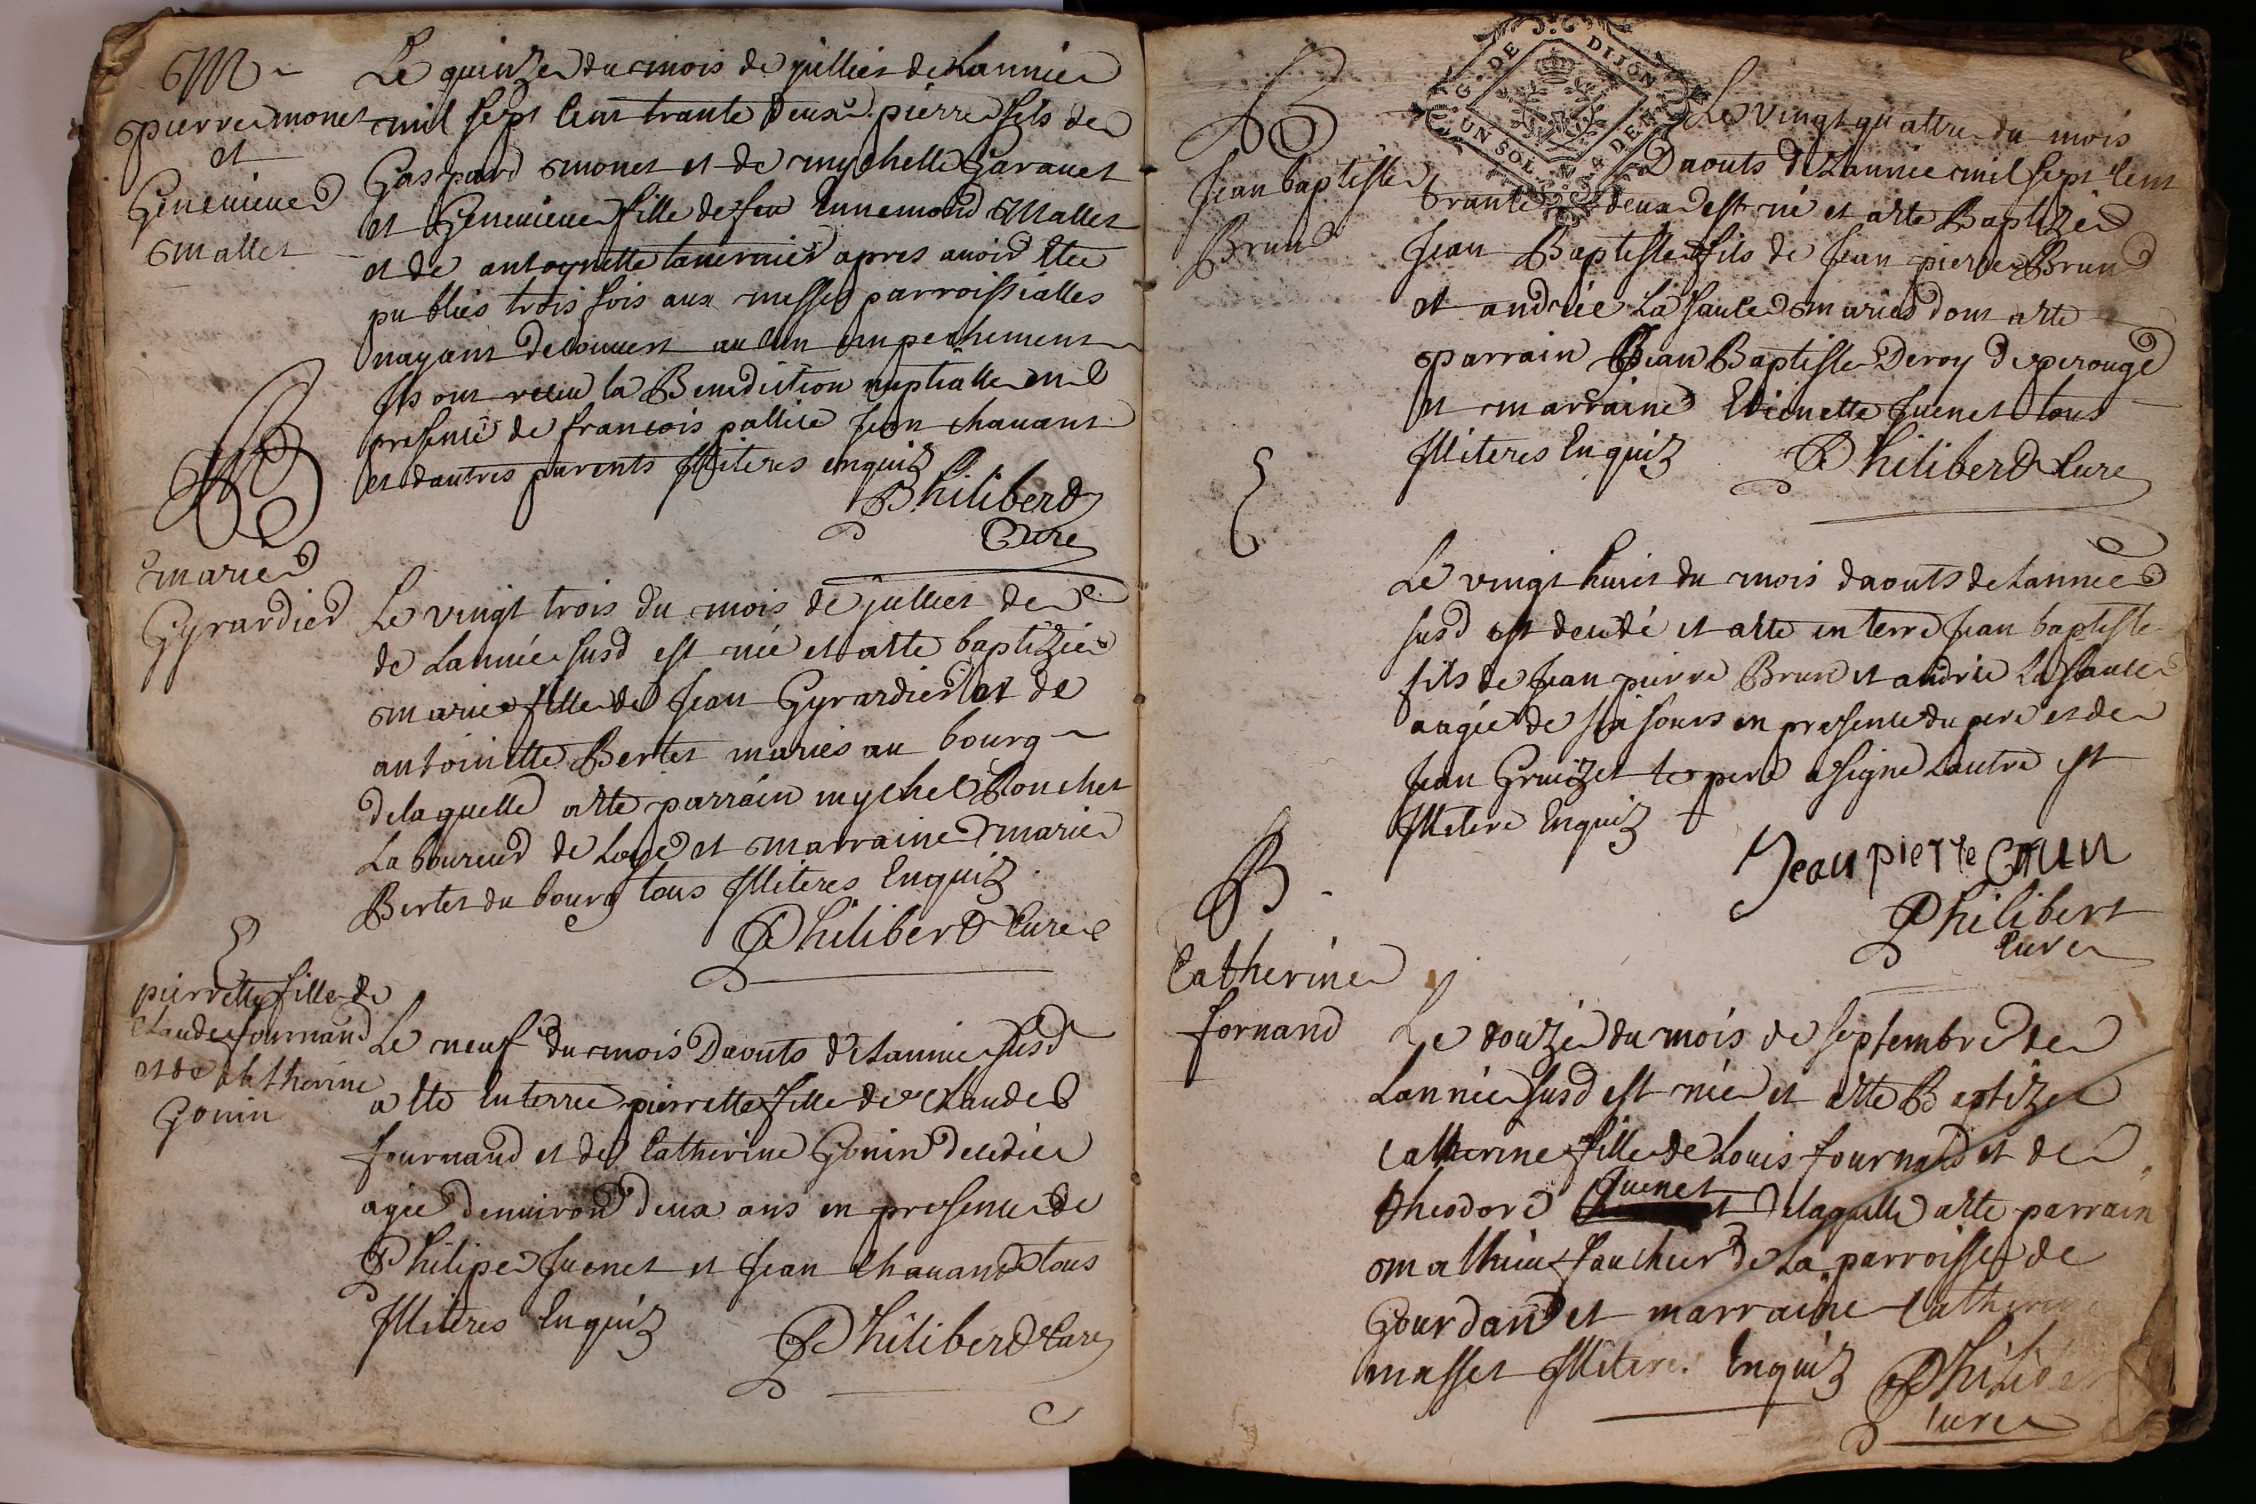 M
pierre monet
et
Genevieve
mallet
Le quinze du mois de julliet de Lannée
mil sept cent trante deux pierre fils de
Gaspard monet et de mychelle Garauet
et Genevieue fille de feu Ennemond Mallet
et de antoynette tauernier apres auoir étée
publiés trois fois aux messes parroissialles
nayant decouuert aucun empechement
Ils ont receu la Benediction nuptialle en
presence de francois pallice Jean chauant
et dautres parents Illiteres enquiz
Philiberd
Cure
B
marie
Gyrardier
Le vingt trois du mois de jullier de
de Lannée susd est née et a ete baptizée
marie fille de Jean Gyrardier et de
antoinette Bertet mariés au bourg
delaquelle a ete parrain mychel Ronchet
Laboureur de Loye et marraine marie
Bertet du bourg tous Illiteres Enquiz
Philiberd Cure
E
pierrette fille de
claude fournand
et de chtherine
Gonin
Le neuf du mois Daouts de Lannée susd
a ete Enterrée pierrette fille de claude
fournand et de Catherine Gonin decedée
agée denuiron deux ans en presence de
Philipe Juenet et Jean chauand tous
Illiteres Enquiz
Philiberd Cure
G. DE DIJON
UN SOL 4 DEN
B
Jean baptiste
Brun
Le vingt quattre du mois
Daouts de Lannée mil sept cent
trante deux est né et a ete Baptizé
Jean Baptiste fils de Jean pierre Brun
et andrée La saule mariés dont a ete
parrain Jean Baptiste Deroy de perouge
et marraine Etienette Juenet tous
Illiteres Enquiz
Philiberd Cure
E
Le vingt huict du mois daouts de Lannée
susd est decedé et a ete enterré Jean baptiste
fils de Jean pierre Brun et andrée La saule
aagée de six Jours en presence du pere et de
Jean Gruizet le pere a signé Lautre est
Illitere Enquiz
Jean pierre Brun
Philibert
Cure
B
Catherine
fornand
Le douze du mois de septembre de
Lannée susd est née et a ete Baptizée
Catherine fille de Louis fournand et de
theodore Juenet delaquelle a ete parrain
mathieu faucheur de La parroisse de
Gourdan et marraine Catherine
masset Illitere. Enquiz
Philiber
Cure